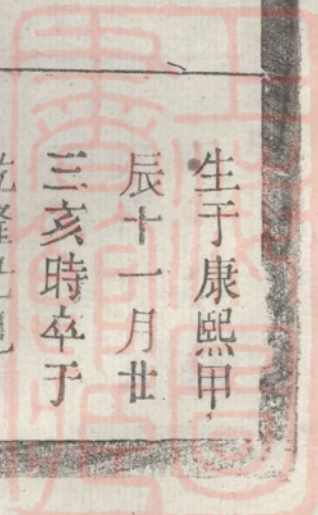 生于康熙甲
辰十一月廿
三亥時卒于
乾隆